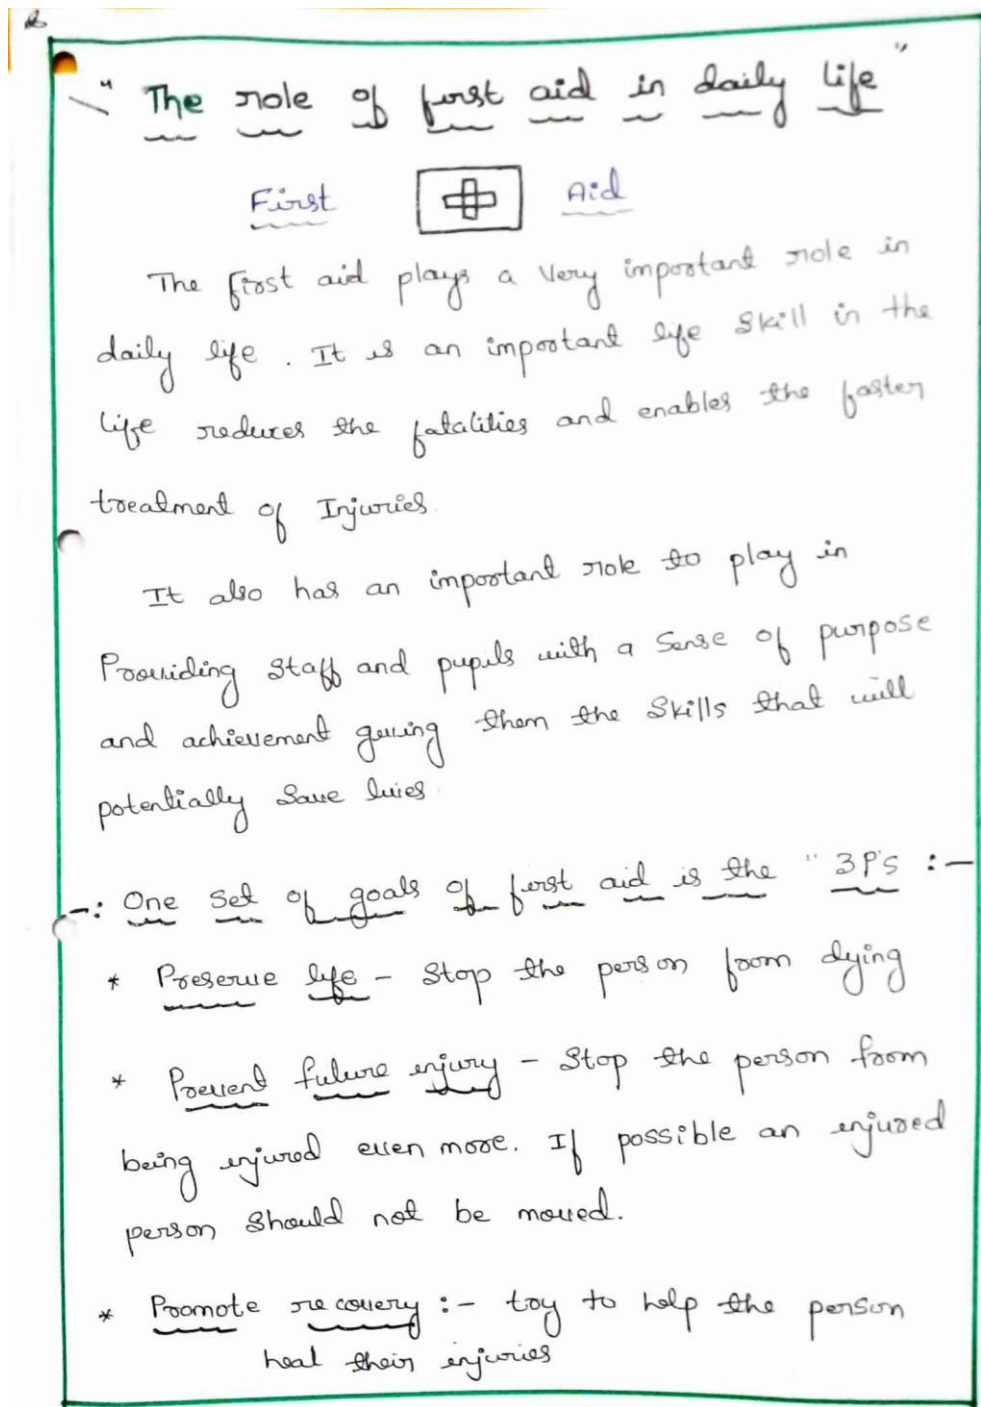 " The role of first aid in daily life "
First Aid
The first aid plays a very important role in
daily life . It is an important life skill in the
life reduces the fatalities and enables the faster
treatment of Injuries.
It also has an important role to play in
Providing staff and pupils with a sense of purpose
and achievement giving them the skills that will
potentially save lives.
-: One set of goals of first aid is the " 3P's :-
* Preserve life - Stop the person from dying
* Prevent future injury - Stop the person from
being injured even more. If possible an injured
person should not be moved.
* Promote recovery :- try to help the person
heal their injuries